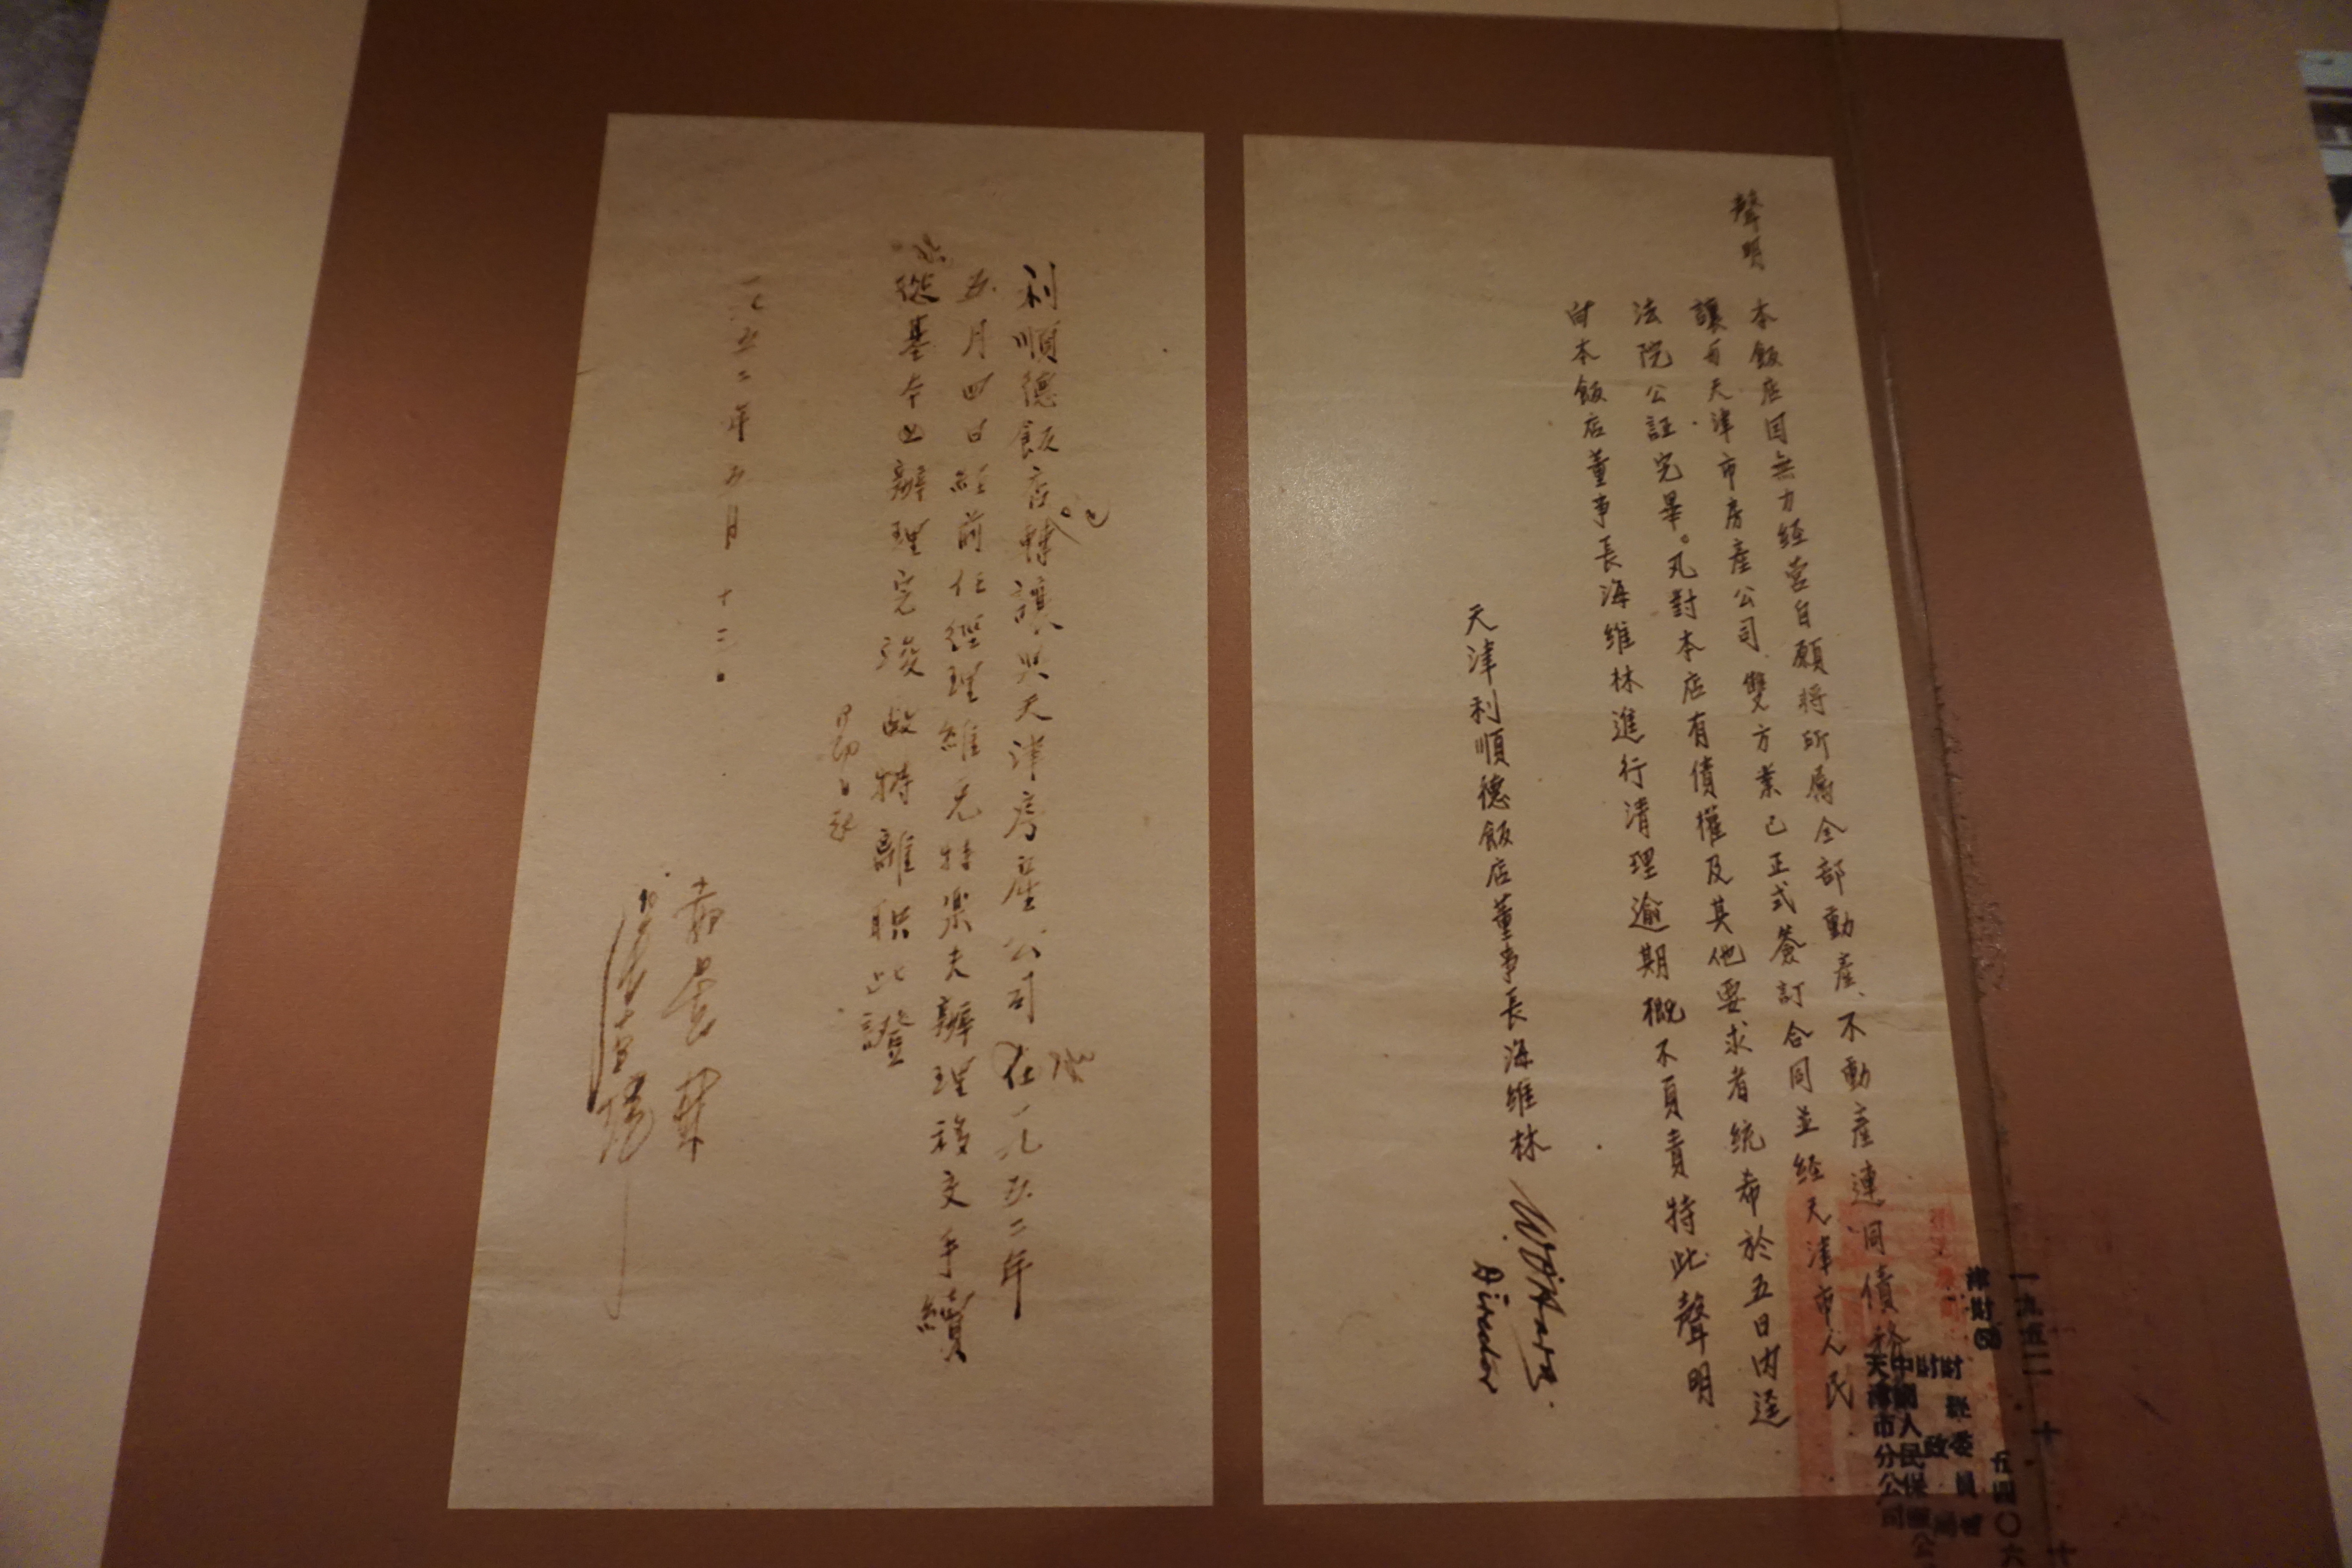 聲明
本飯店因無力經营自願將所属全部動産、不動産連同債務
讓与天津市房産公司雙方業已正式簽訂合同並経天津市人民
法院公証完畢。凡對本店有債權及其他要求者統希於五日内逕
向本飯店董事長海維林進行清理逾期概不負責特此聲明
天津利順德飯店董事長海維林
Director
利順德飯店轉讓與天津房産公司在一九五二年
五月四日経前任經理維克特樂夫辦理移交手續
從基本上辦理完竣故特離职此證
一九五二年五月十二日
中國人民保
天津市分公司